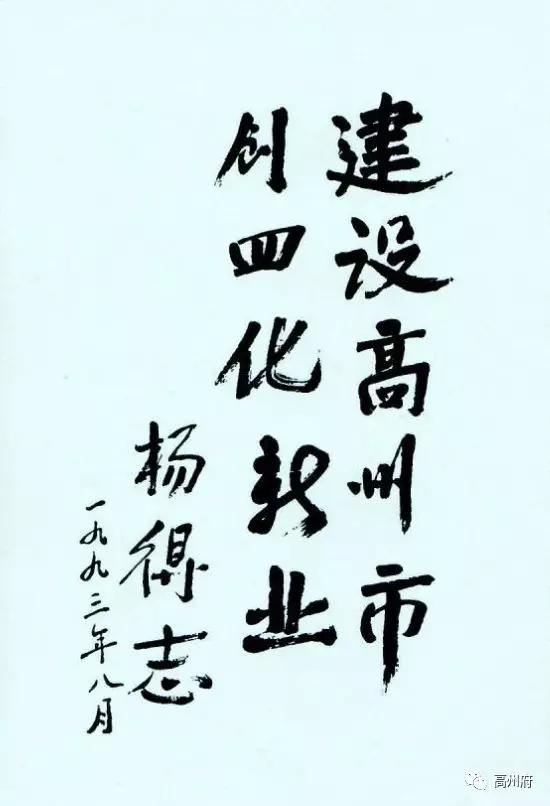 建设高州市
创四化新业
杨得志
一九九三年八月
高州府